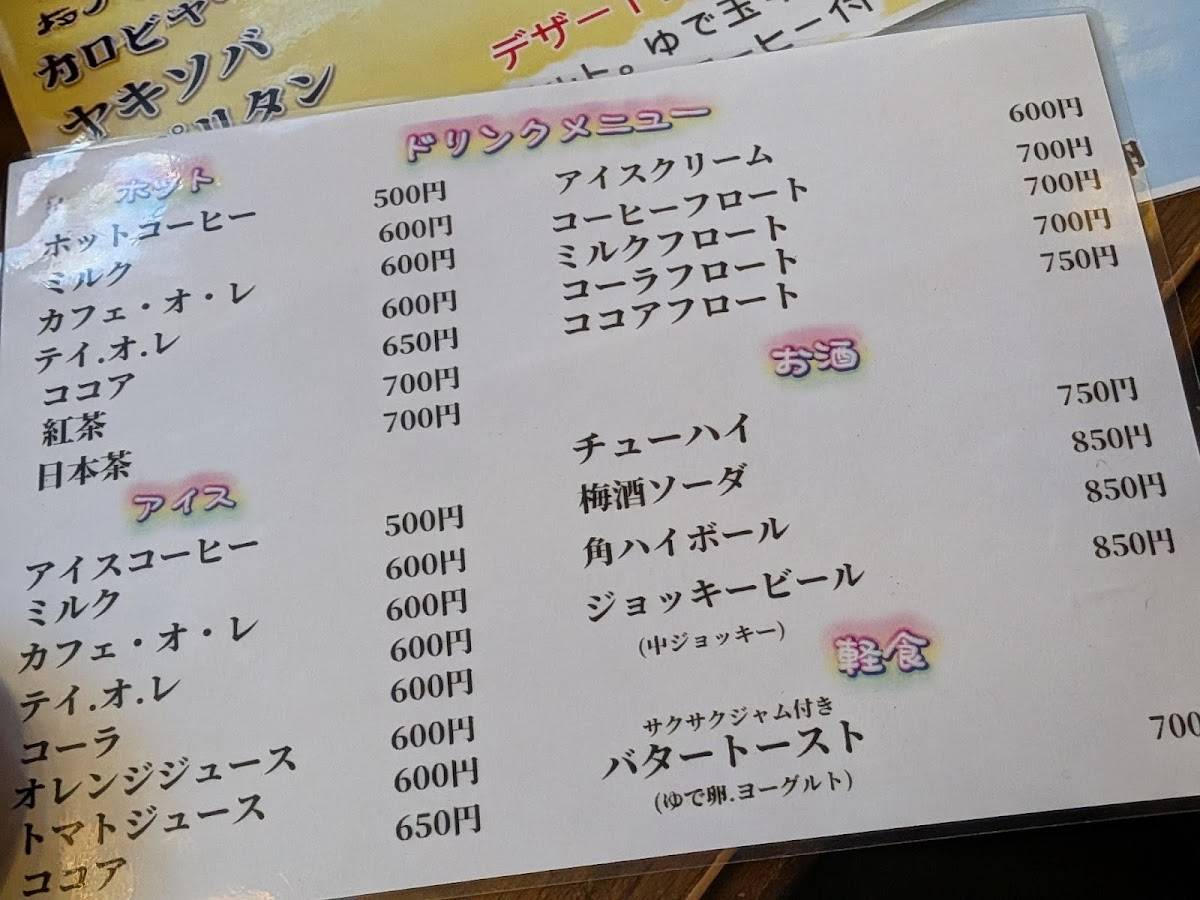 カロビヤ
ヤキソバ
リタン
デザート
ゆで玉
ーヒー付
ドリンクメニュー
ホット
ホットコーヒー 500円
ミルク 600円
カフェ・オ・レ 600円
テイ.オ.レ 600円
ココア 650円
紅茶 700円
日本茶 700円
アイス
アイスコーヒー 500円
ミルク 600円
カフェ・オ・レ 600円
テイ.オ.レ 600円
コーラ 600円
オレンジジュース 600円
トマトジュース 600円
ココア 650円
アイスクリーム 600円
コーヒーフロート 700円
ミルクフロート 700円
コーラフロート 700円
ココアフロート 750円
お酒
チューハイ 750円
梅酒ソーダ 850円
角ハイボール 850円
ジョッキービール 850円
(中ジョッキー)
軽食
サクサクジャム付き
バタートースト 700
(ゆで卵.ヨーグルト)